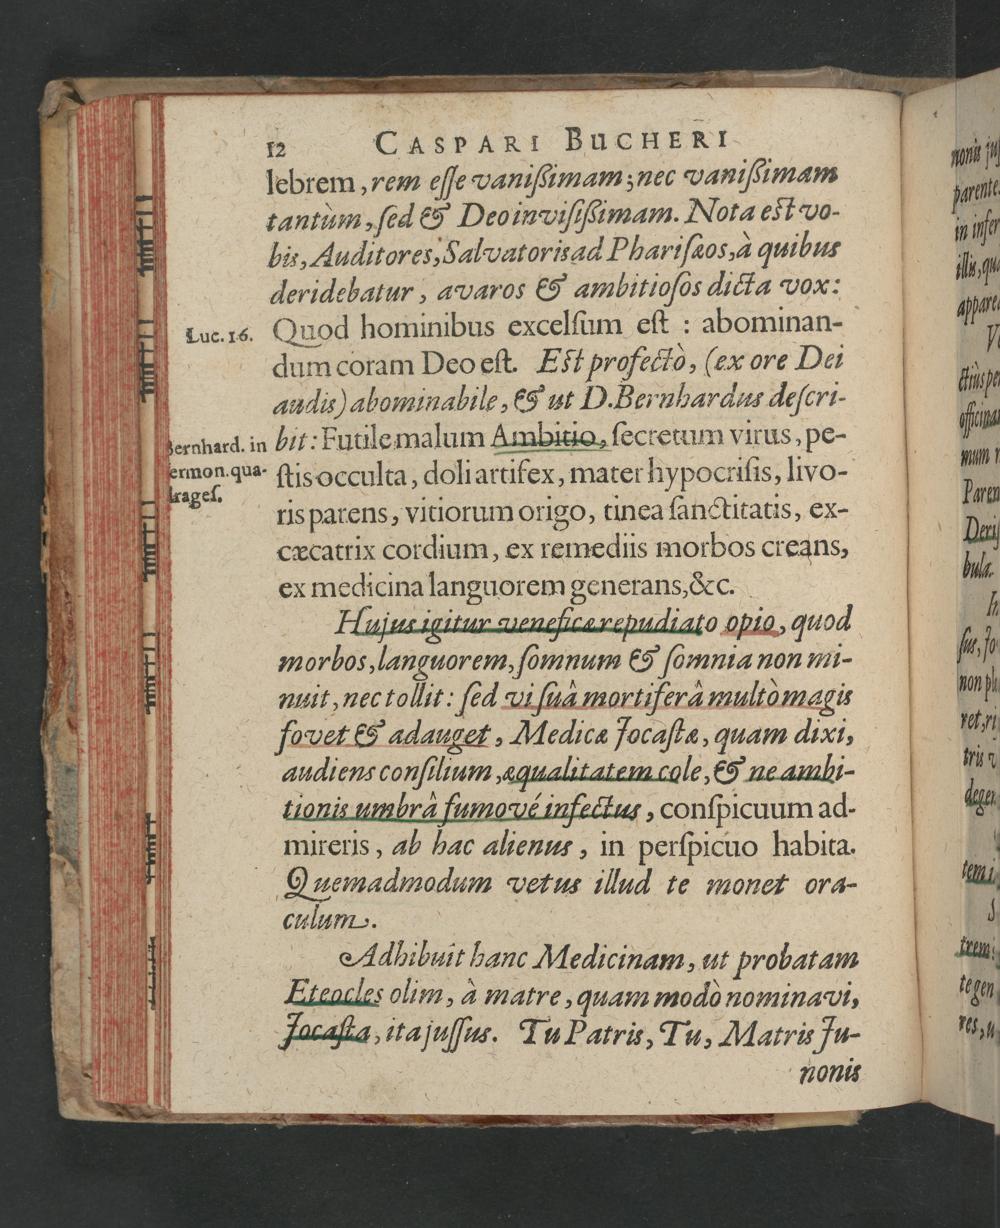 12 CASPARI BUCHERI
lebrem, rem eſſe vaniſſimam; nec vaniſſimam
tantùm, ſed & Deo inviſiſſimam. Nota eſt vo-
bis, Auditores, Salvatoris ad Phariſæos, à quibus
deridebatur, avaros & ambitioſos dicta vox:
Luc. 16.
Quod hominibus excelſum eſt : abominan-
dum coram Deo eſt. Eſt profectò, (ex ore Dei
audis) abominabile, & ut D. Bernhardus deſcri-
Bernhard. in
ermon. qua-
drageſ.
bit: Futile malum Ambitio, ſecretum virus, pe-
ſtis occulta, doli artifex, mater hypocriſis, livo-
ris parens, vitiorum origo, tinea ſanctitatis, ex-
cæcatrix cordium, ex remediis morbos creans,
ex medicina languorem generans, &c.
Hujus igitur veneficæ repudiato opio, quod
morbos, languorem, ſomnum & ſomnia non mi-
nuit, nec tollit: ſed vi ſuâ mortiferâ multò magis
fovet & adauget, Medicæ Jocaſtæ, quam dixi,
audiens conſilium, æqualitatem cole, & ne ambi-
tionis umbrâ fumové infectus, conſpicuum ad-
mireris, ab hac alienus, in perſpicuo habita.
Quemadmodum vetus illud te monet ora-
culum.
Adhibuit hanc Medicinam, ut probatam
Eteocles olim, à matre, quam modò nominavi,
Jocaſta, ita juſſus. Tu Patris, Tu, Matris Ju-
nonis
nonis
parente
in infer
illis, qua
appare
officina
mum
Paren
bula.
non pl
tris
degen
trem
tegen
res, u